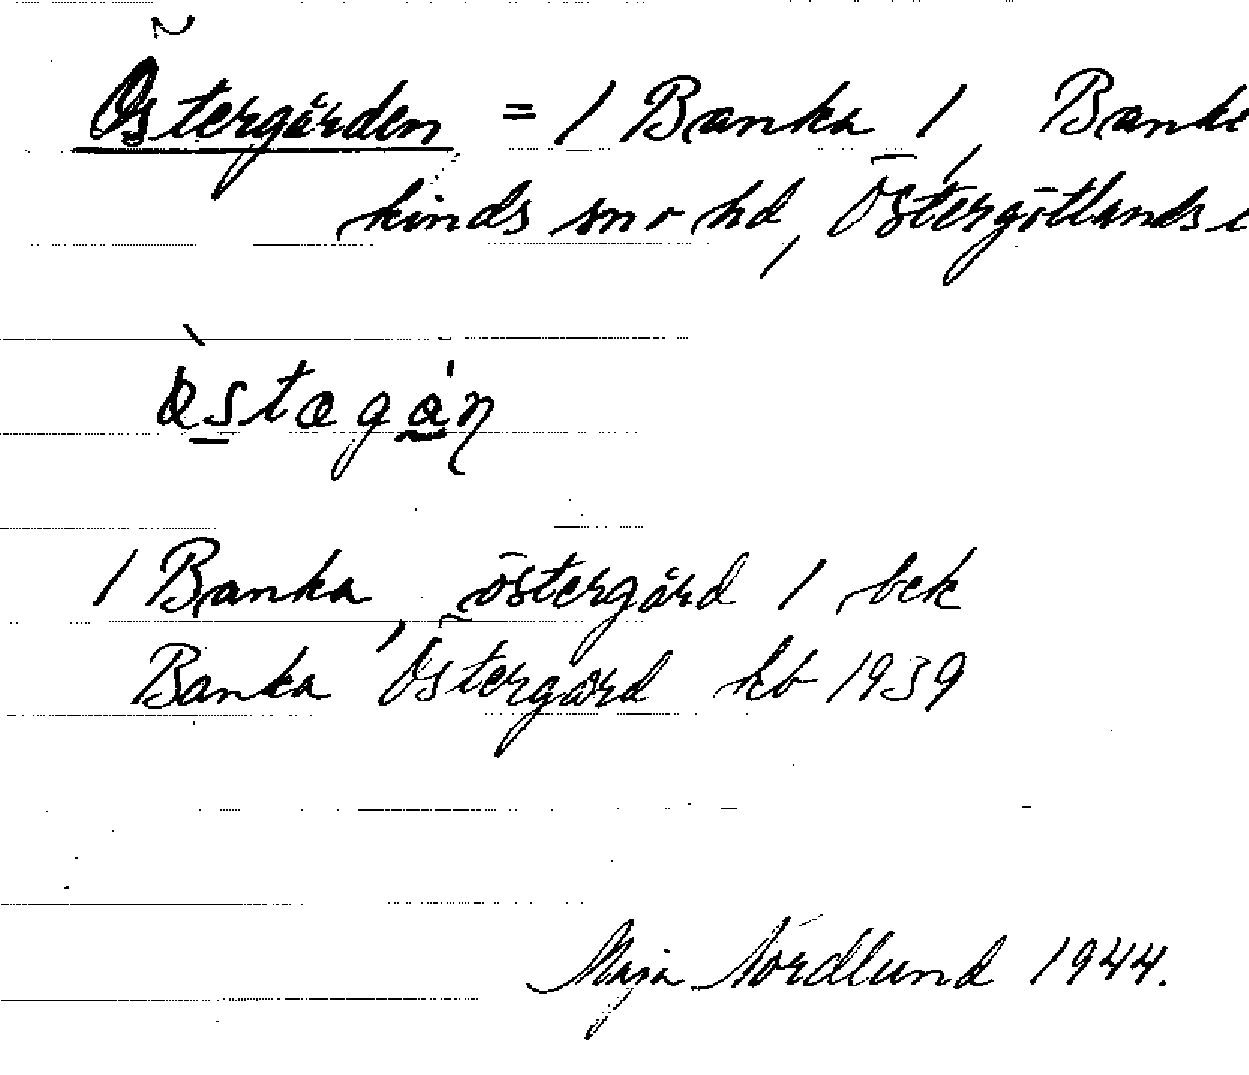 Östergården = / Banka /, Banke
kinds sn o hd, Östergötlands
östægán
/ Banka, östergård / bek
Banka Östergård kb 1939
Maja Nordlund 1944.